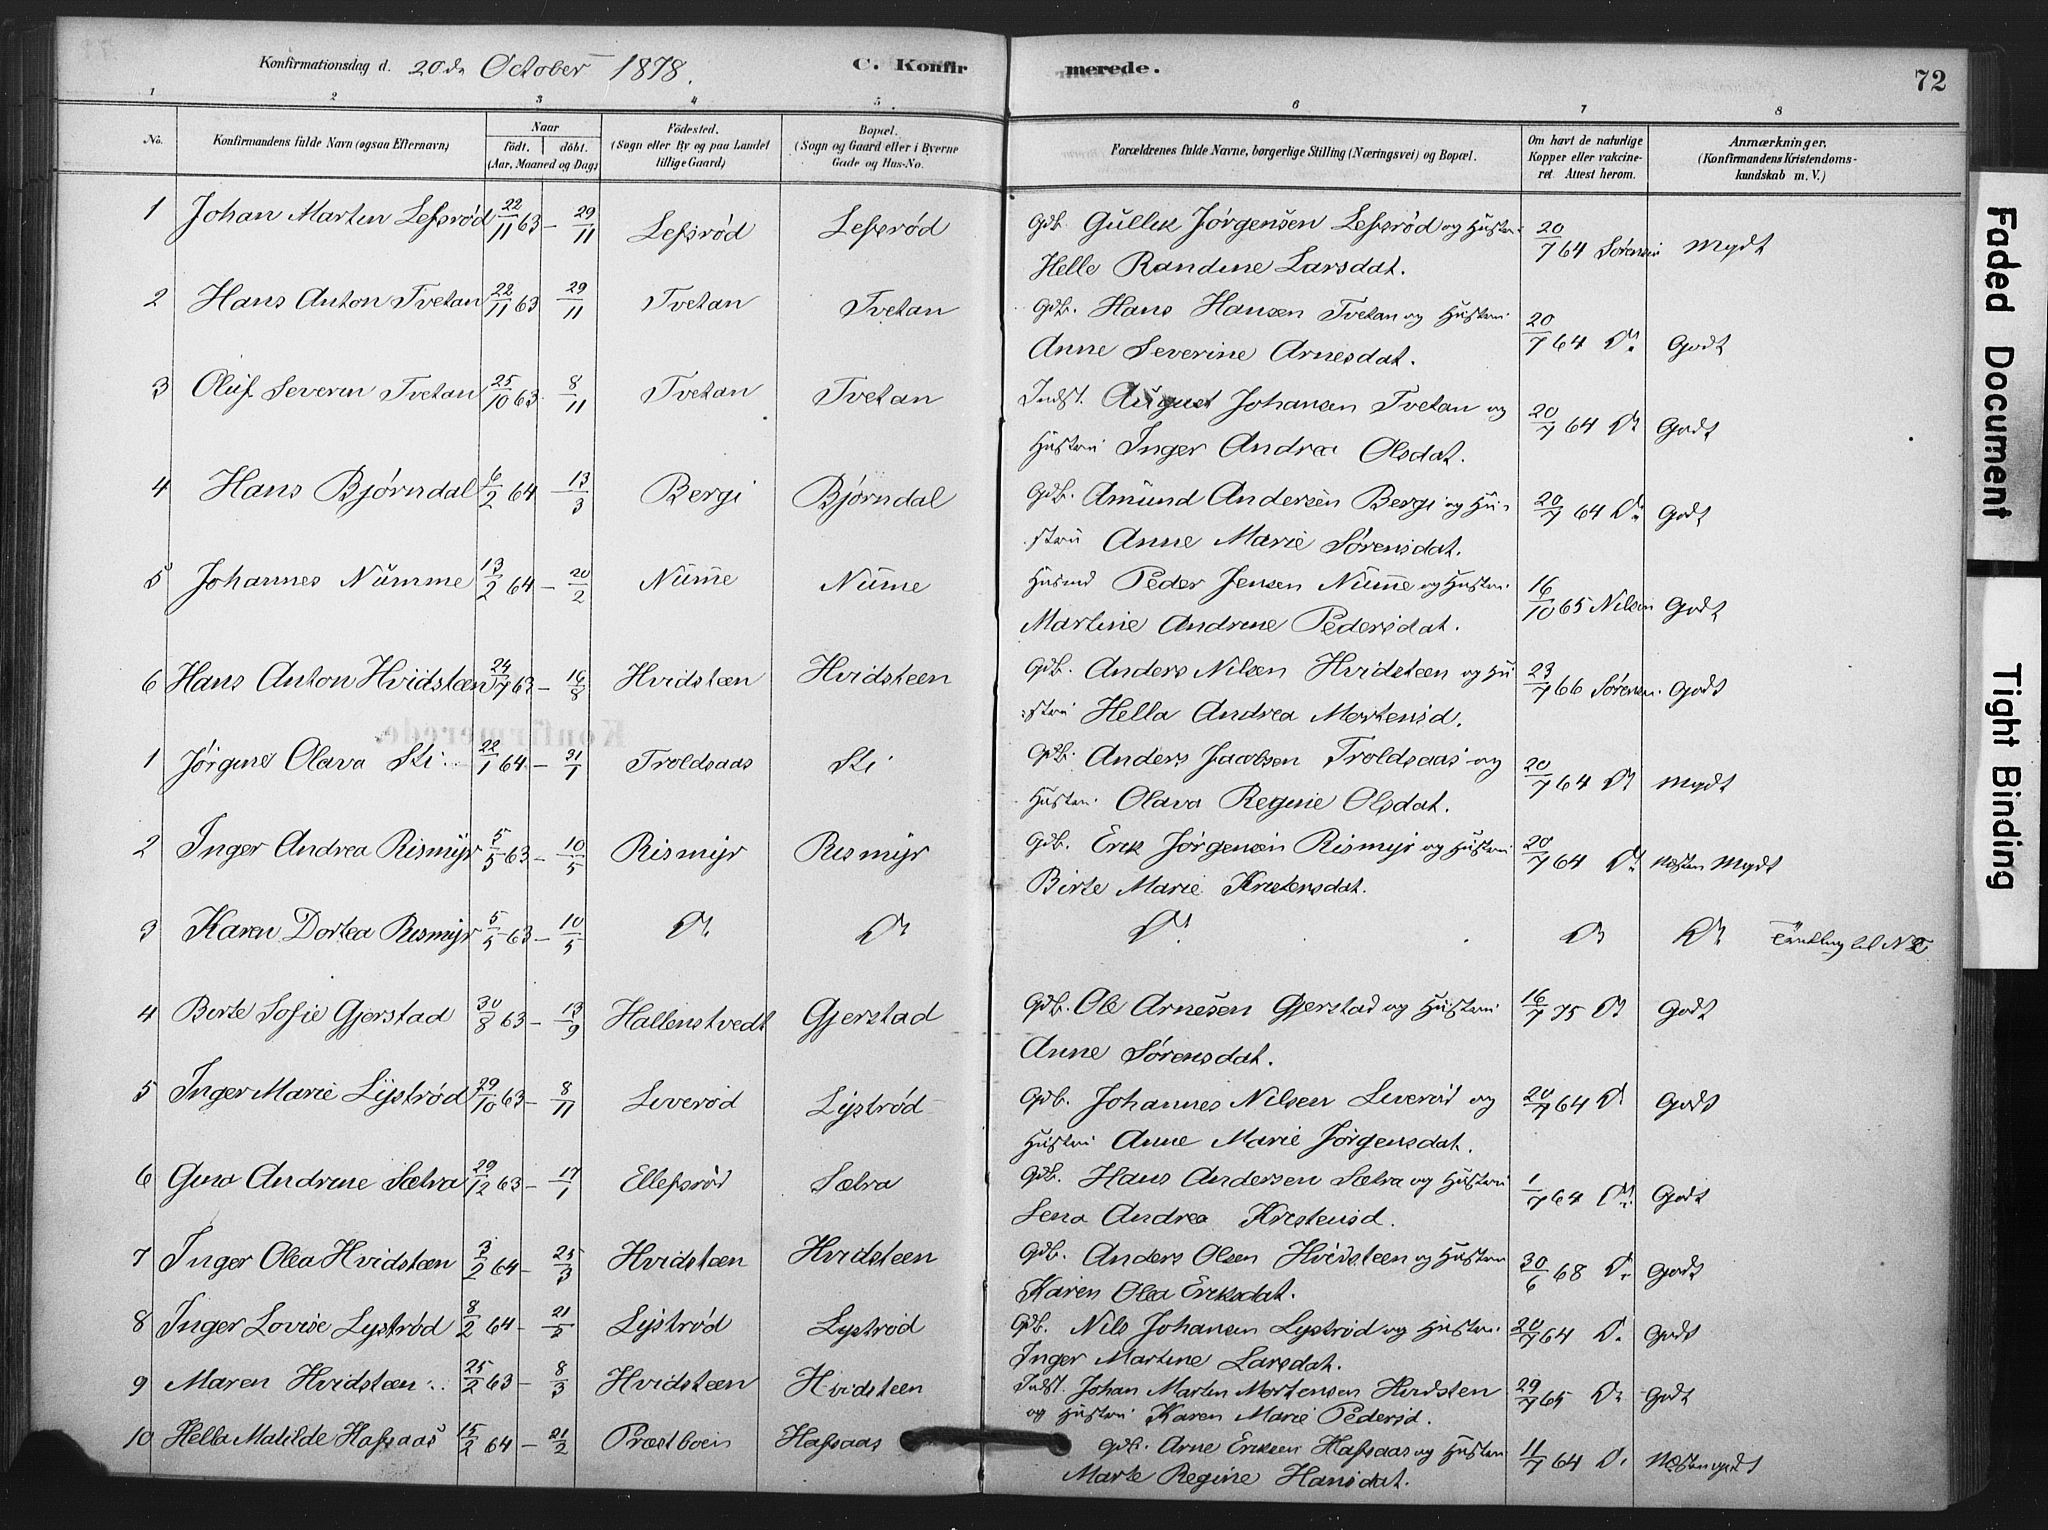 Konfirmationsdag d. 20de October 1878. C. Konfirmerede. 72
1 2 3 4 5. 6 7 8
No. Konfirmandens fulde Navn (ogsaa Efternavn) Naar födt. döbt. (Aar, Maaned og Dag) Födested. (Sogn eller By og paa Landet tillige Gaard) Bopæl. (Sogn og Gaard eller i Byerne Gade og Hus-No. Forældrenes fulde Navne, borgerlige Stilling (Næringsvei) og Bopæl. Om havt de naturlige Kopper eller vakcineret. Attest herom. Anmærkninger. (Konfirmandens Kristendomskundskab m. V.)
1 Johan Martin Lefsrød 22/11 63 – 29/11 Lefsrød Lefsrød Gdb. Gullik Jørgensen Lefsrød og Hustru 20/7 64 Sørensen Mgdt
Helle Randine Larsdat.
2 Hans Anton Tvetan 22/11 63 29/11 Tvetan Tvetan Gdb. Hans Hansen Tvetan og Hustru 20/7 64 Do. Godt
Anne Severine Arnesdat.
3 Oluf Severin Tvetan 25/10 63. 8/11 Tvetan Tvetan Indst. August Johansen Tvetan og 20/7 64 Do Godt
Hustru Inger Andrea Olsdat.
4 Hans Bjørndal 6/2 64 – 13/3 Bergi Bjørndal Gdb. Amund Andersen Bergi og Hu- 20/7 64 Do. Godt
stru Anne Marie Sørensdat.
5 Johannes Numme 13/2 64 – 20/2 Num̄e Num̄e Husmd Peder Jensen Num̄e og Hustru 16/10 65 Nilsen Godt
Martine Andrine Pedersdat.
6 Hans Anton Hvidsteen 24/7 63 – 16/8 Hvidsteen Hvidsteen Gdb. Anders Nilsen Hvidsteen og Hu 23/7 66 Sørensen. Godt
stru Hella Andrea Mortensd.
1 Jørgine Olava Ski 22/1 64 – 31/1 Troldsaas Ski Gdb. Anders Jacobsen Troldsaas og 20/7 64 Do Mgdt
Hustru Olava Regine Olsdat.
2 Inger Andrea Rismyr 5/5 63 – 10/5 Rismyr Rismyr Gdb. Erik Jørgensen Rismyr og Hustru 20/7 64 Do. næsten Mgdt
Birte Marie Kristensdat.
3 Karen Dortea Rismyr 5/5 63 – 10/5 Do. Do Do. Do Do Tvilling til N 2
4 Birte Sofie Gjerstad 30/8 63 – 13/9 Hallenstvedt Gjerstad Gdb. Ole Arnesen Gjerstad og Hustru 16/7 75 Do Godt
Anne Sørensdat.
5 Inger Marie Lystrød 29/10 63 – 8/11 Liverød Lystrød Gdb. Johannes Nilsen Liverød og 20/7 64 Do Godt
Hustru Anne Marie Jørgensdat.
6 Gina Andrine Sætra 29/12 63 – 17/1 Ellefsrød Sætra Gdb. Hans Andersen Sætra og Hustru 1/7 64 Do. Godt
Lena Andrea Kristensd.
7 Inger Olea Hvidsteen 3/2 64 – 25/3 Hvidsteen Hvidsteen Gdb. Anders Olsen Hvidsteen og Hustru 30/6 68 Do. Godt
Karen Olea Eriksdat.
8 Inger Lovise Lystrød 8/2 64 – 21/5 Lystrød Lystrød Gdb. Nils Johansen Lystrød og Hustru 20/7 64 Do. Godt
Inger Martine Larsdat.
9 Maren Hvidsteen 25/2 63 – 8/3 Hvidsteen Hvidsteen Indst. Johan Martin Mortensen Hvidsten 29/7 65 Do Godt
og Hustru Karen Marie Pedersd.
10 Hella Matilde Hafsaas 15/2 64 – 21/2 Præstboen Hafsaas Gdb. Arne Eriksen Hafsaas og Hustru 11/7 64 Do Næsten mgdt
Marte Regine Hansdat.
Faded Document
Tight Binding